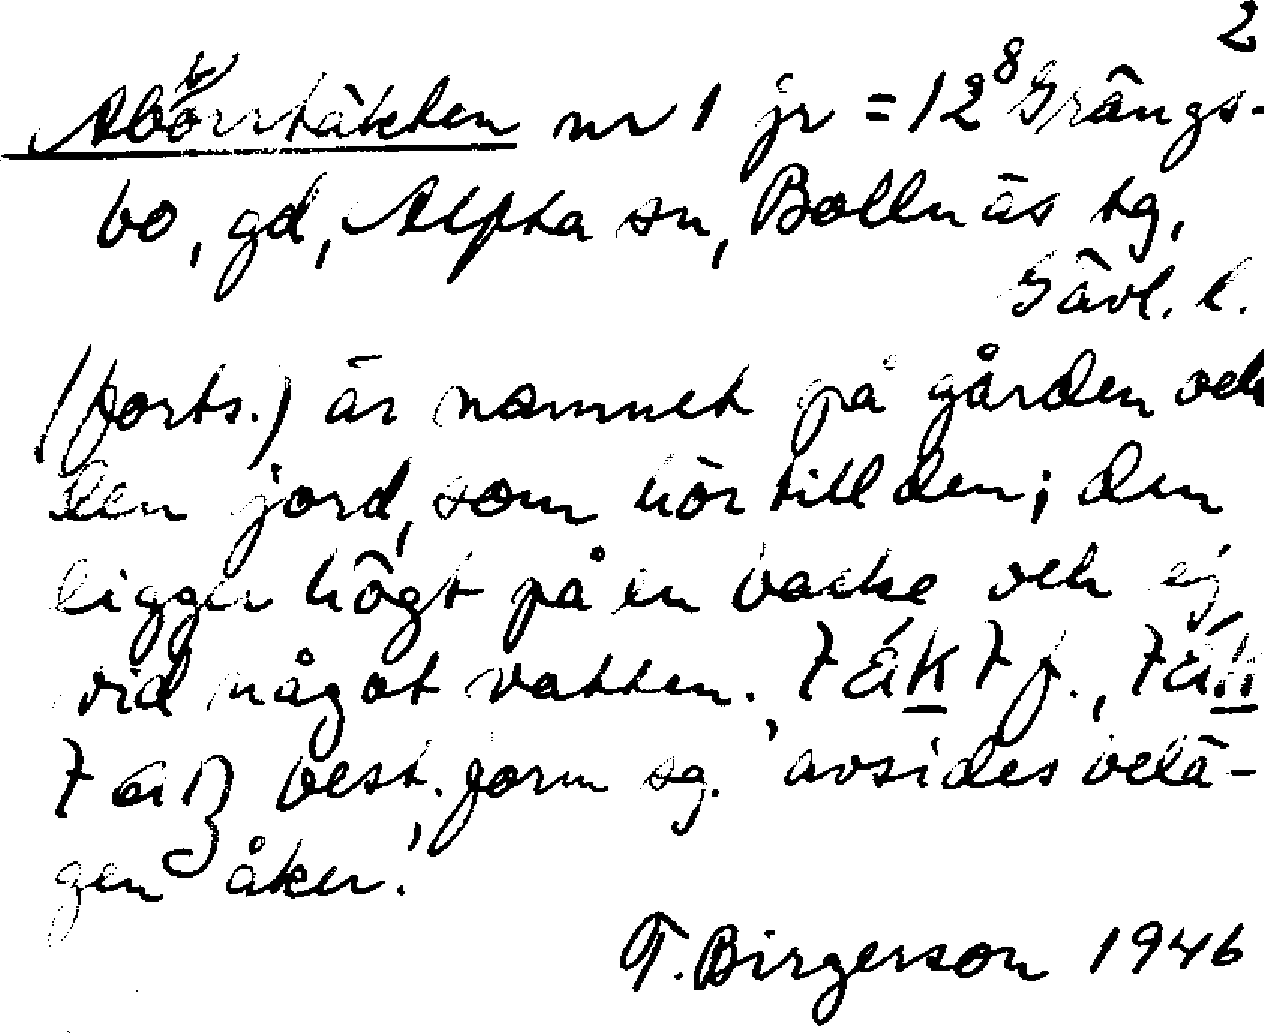 2
Abborrtäkten nr 1 jr = 12⁸ Grängs-
bo, gd, Alfta sn, Bollnäs tg,
Gävl. l.
(forts.) är namnet på gården och
den jord, som hör till den; den
ligger högt på en backe och ej
vid något vatten.
best. form sg. 'avsides belä-
gen åker.'
T. Birgerson 1946